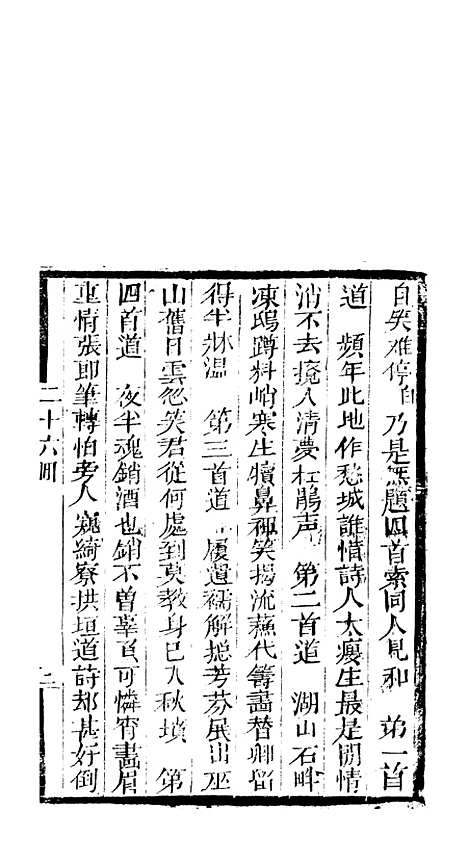 自笑难停自 乃是無題四首索同人見和 第一首
道 頻年此地作愁城誰惜詩人太瘦生最是閒情
消不去攪人清夢杜鵑声 第二首道 湖山石畔
凍鴟蹲料峭寒生犢鼻褌笑揭流蘇代籌畵替卿留
得半牀温 第三首道 履遺襦解挹芳芬展出巫
山舊日雲忽笑君從何處到莫教身已入秋墳 第
四首道 夜半魂銷酒也銷不曾辜負可憐宵畵眉
重情張郎筆轉怕旁人窺綺寮拱垣道詩却甚好倒
二十六囬